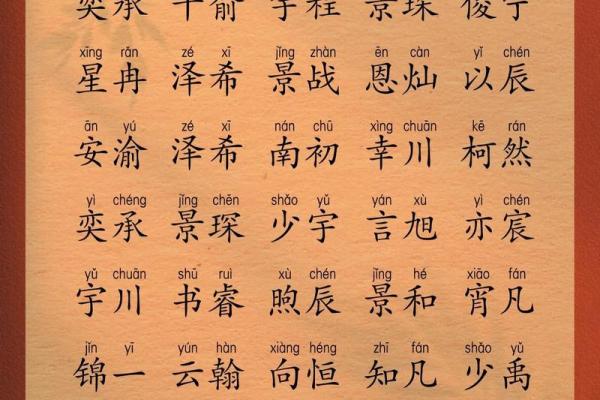 奕承 千俞 宇程 景琛 俊宁
xīng rǎn zé xī jǐng zhàn ēn càn yǐ chén
星冉 泽希 景战 恩灿 以辰
ān yú zé xī nán chū xìng chuān kē rán
安渝 泽希 南初 幸川 柯然
yì chéng jǐng chēn shǎo yǔ yán xù yì chén
奕承 景琛 少宇 言旭 亦宸
yǔ chuān shū ruì xù chén jǐng hé xiāo fán
宇川 书睿 煦辰 景和 宵凡
jǐn yī yún hàn xiàng héng zhī fán shǎo yǔ
锦一 云翰 向恒 知凡 少禹